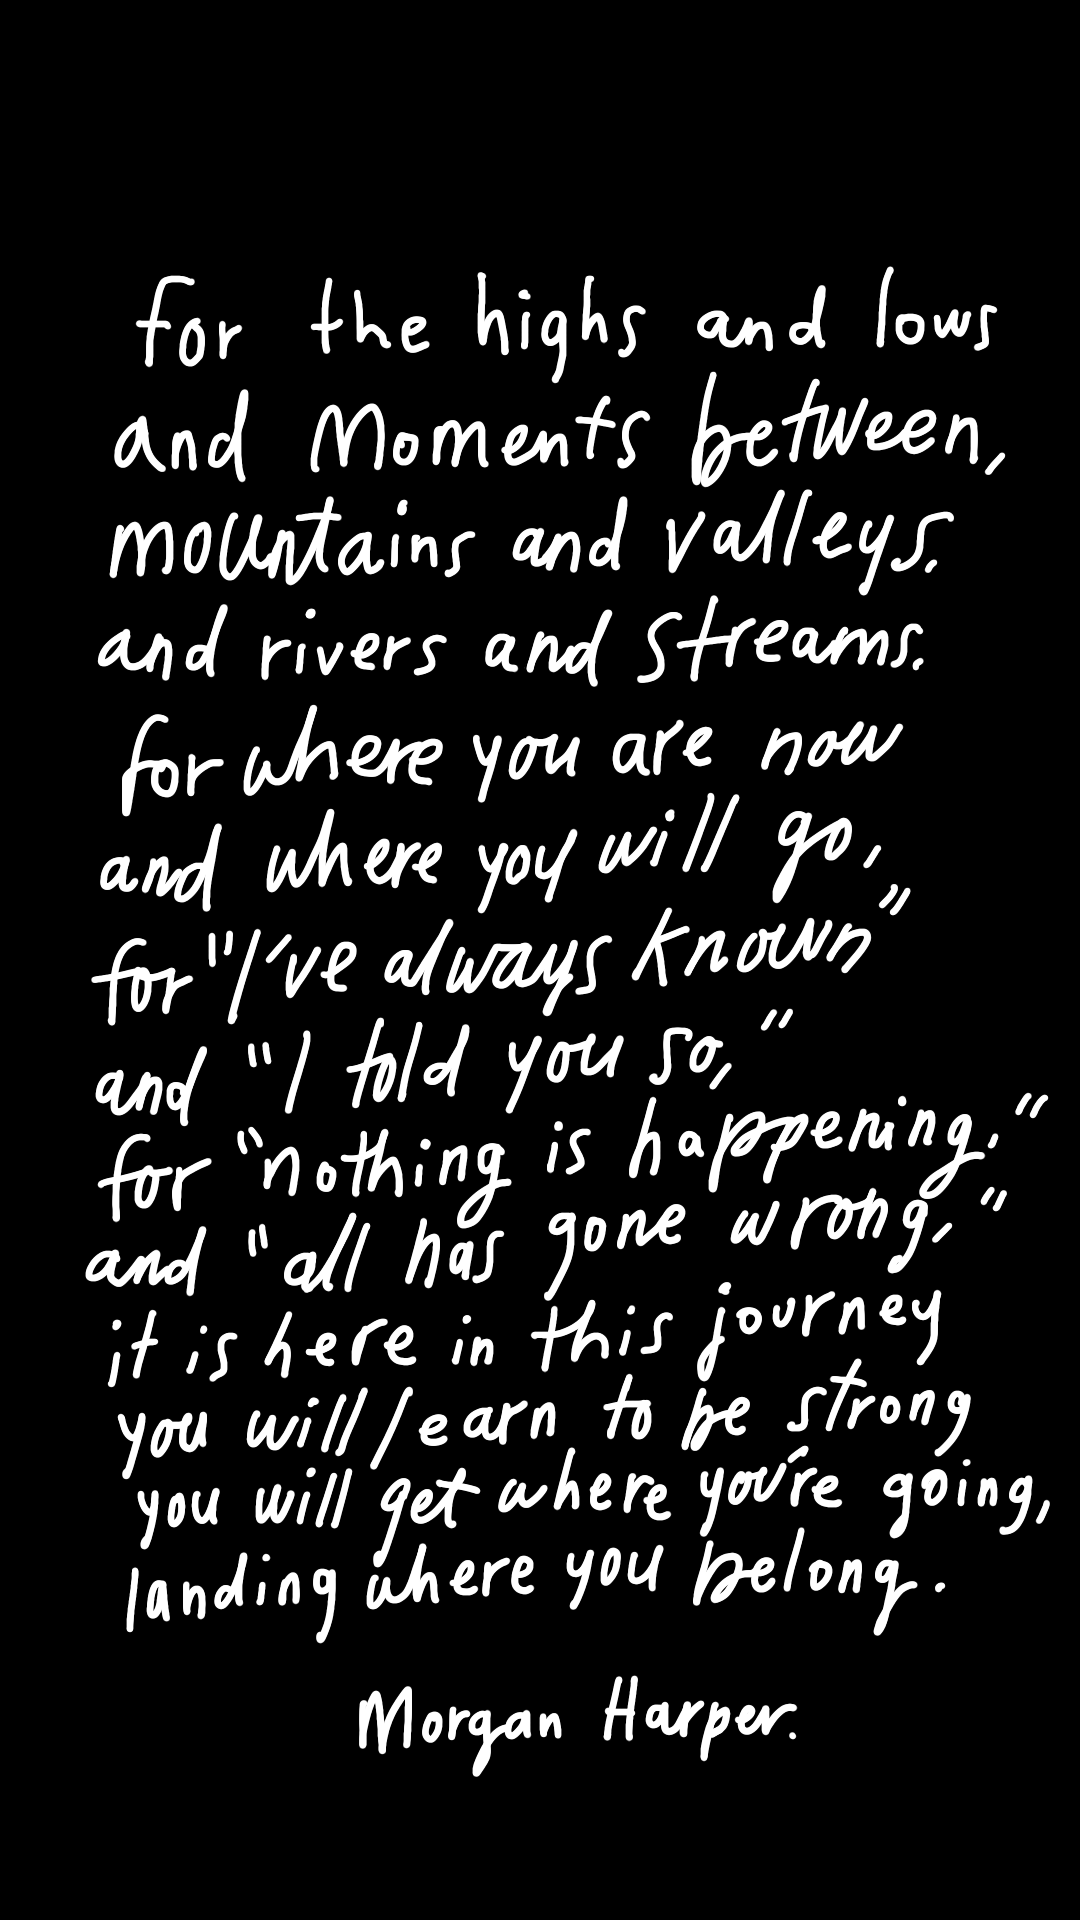 for the highs and lows
and Moments between,
mountains and valleys.
and rivers and streams.
for where you are now
and where you will go,
for "I've always known"
and "I told you so,"
for "nothing is happening,"
and "all has gone wrong,"
it is here in this journey
you will learn to be strong
you will get where you're going,
landing where you belong.
Morgan Harper.